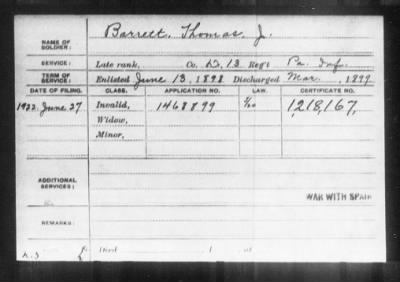 NAME OF SOLDIER: Barrett, Thomas J.
SERVICE: Late rank, Co. D, 13 Reg't Pa. Inf.
TERM OF SERVICE: Enlisted June 13, 1898 Discharged Mar. , 1899
DATE OF FILING. CLASS. APPLICATION NO. LAW. CERTIFICATE NO.
1922. June 27 Invalid, 1468899 1,218,167,
Widow,
Minor,
ADDITIONAL SERVICES:
WAR WITH SPAIN
REMARKS: